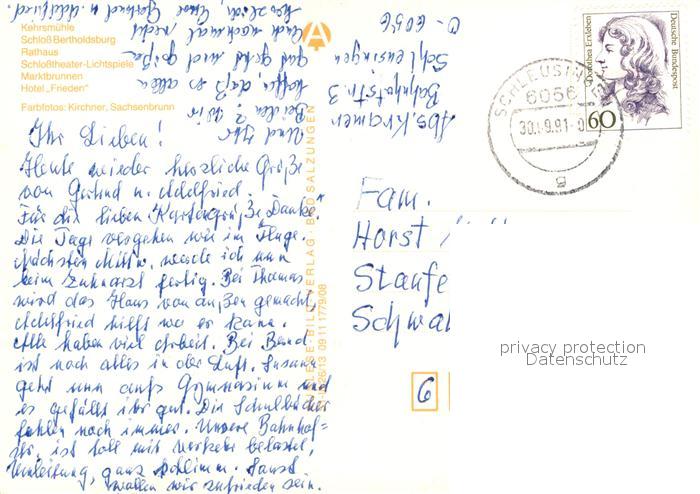 Kehrsmühle
Schloß Bertholdsburg
Rathaus
Schloßtheater-Lichtspiele
Marktbrunnen
Hotel „Frieden“
Farbfotos: Kirchner, Sachsenbrunn
Ihr Lieben!
Heute wieder herzliche Grüße
von Gertrud u. Adelfried.
Für die lieben Kartengrüße Danke.
Die Tage vergehen wie im Fluge.
Nächsten Mittw. werde ich nun
beim Zahnarzt fertig. Bei Thomas
wird das Haus von außen gemacht
Adelfried hilft wo er kann.
Alle haben viel Arbeit. Bei Bernd
ist noch alles in der Luft. Susann
geht nun aufs Gymnasium und
es gefällt ihr gut. Die Schulbücher
fehlen noch immer. Unsere Bahnhof-
str. ist toll mit Verkehr belastet,
Umleitung, ganz schlimm. Sonst
wollen wir zufrieden sein.
Und Ihr
Beiden? Wir
hoffen, daß es allen
gut geht und grüßen
Euch nochmal recht
herzlich, Eure Gertrud u. Adelfried.
BILD VERLAG · BAD SALZUNGEN
09 11 1779/08
Abs. Kramer
Bahnhofstr. 3
Schleusingen
O-6056
Deutsche Bundespost
Dorothea Erxleben
60
SCHLEUSINGEN
6056
30.-9.91-0
g
Fam.
Horst
Staufe
Schwa
6
privacy protection
Datenschutz